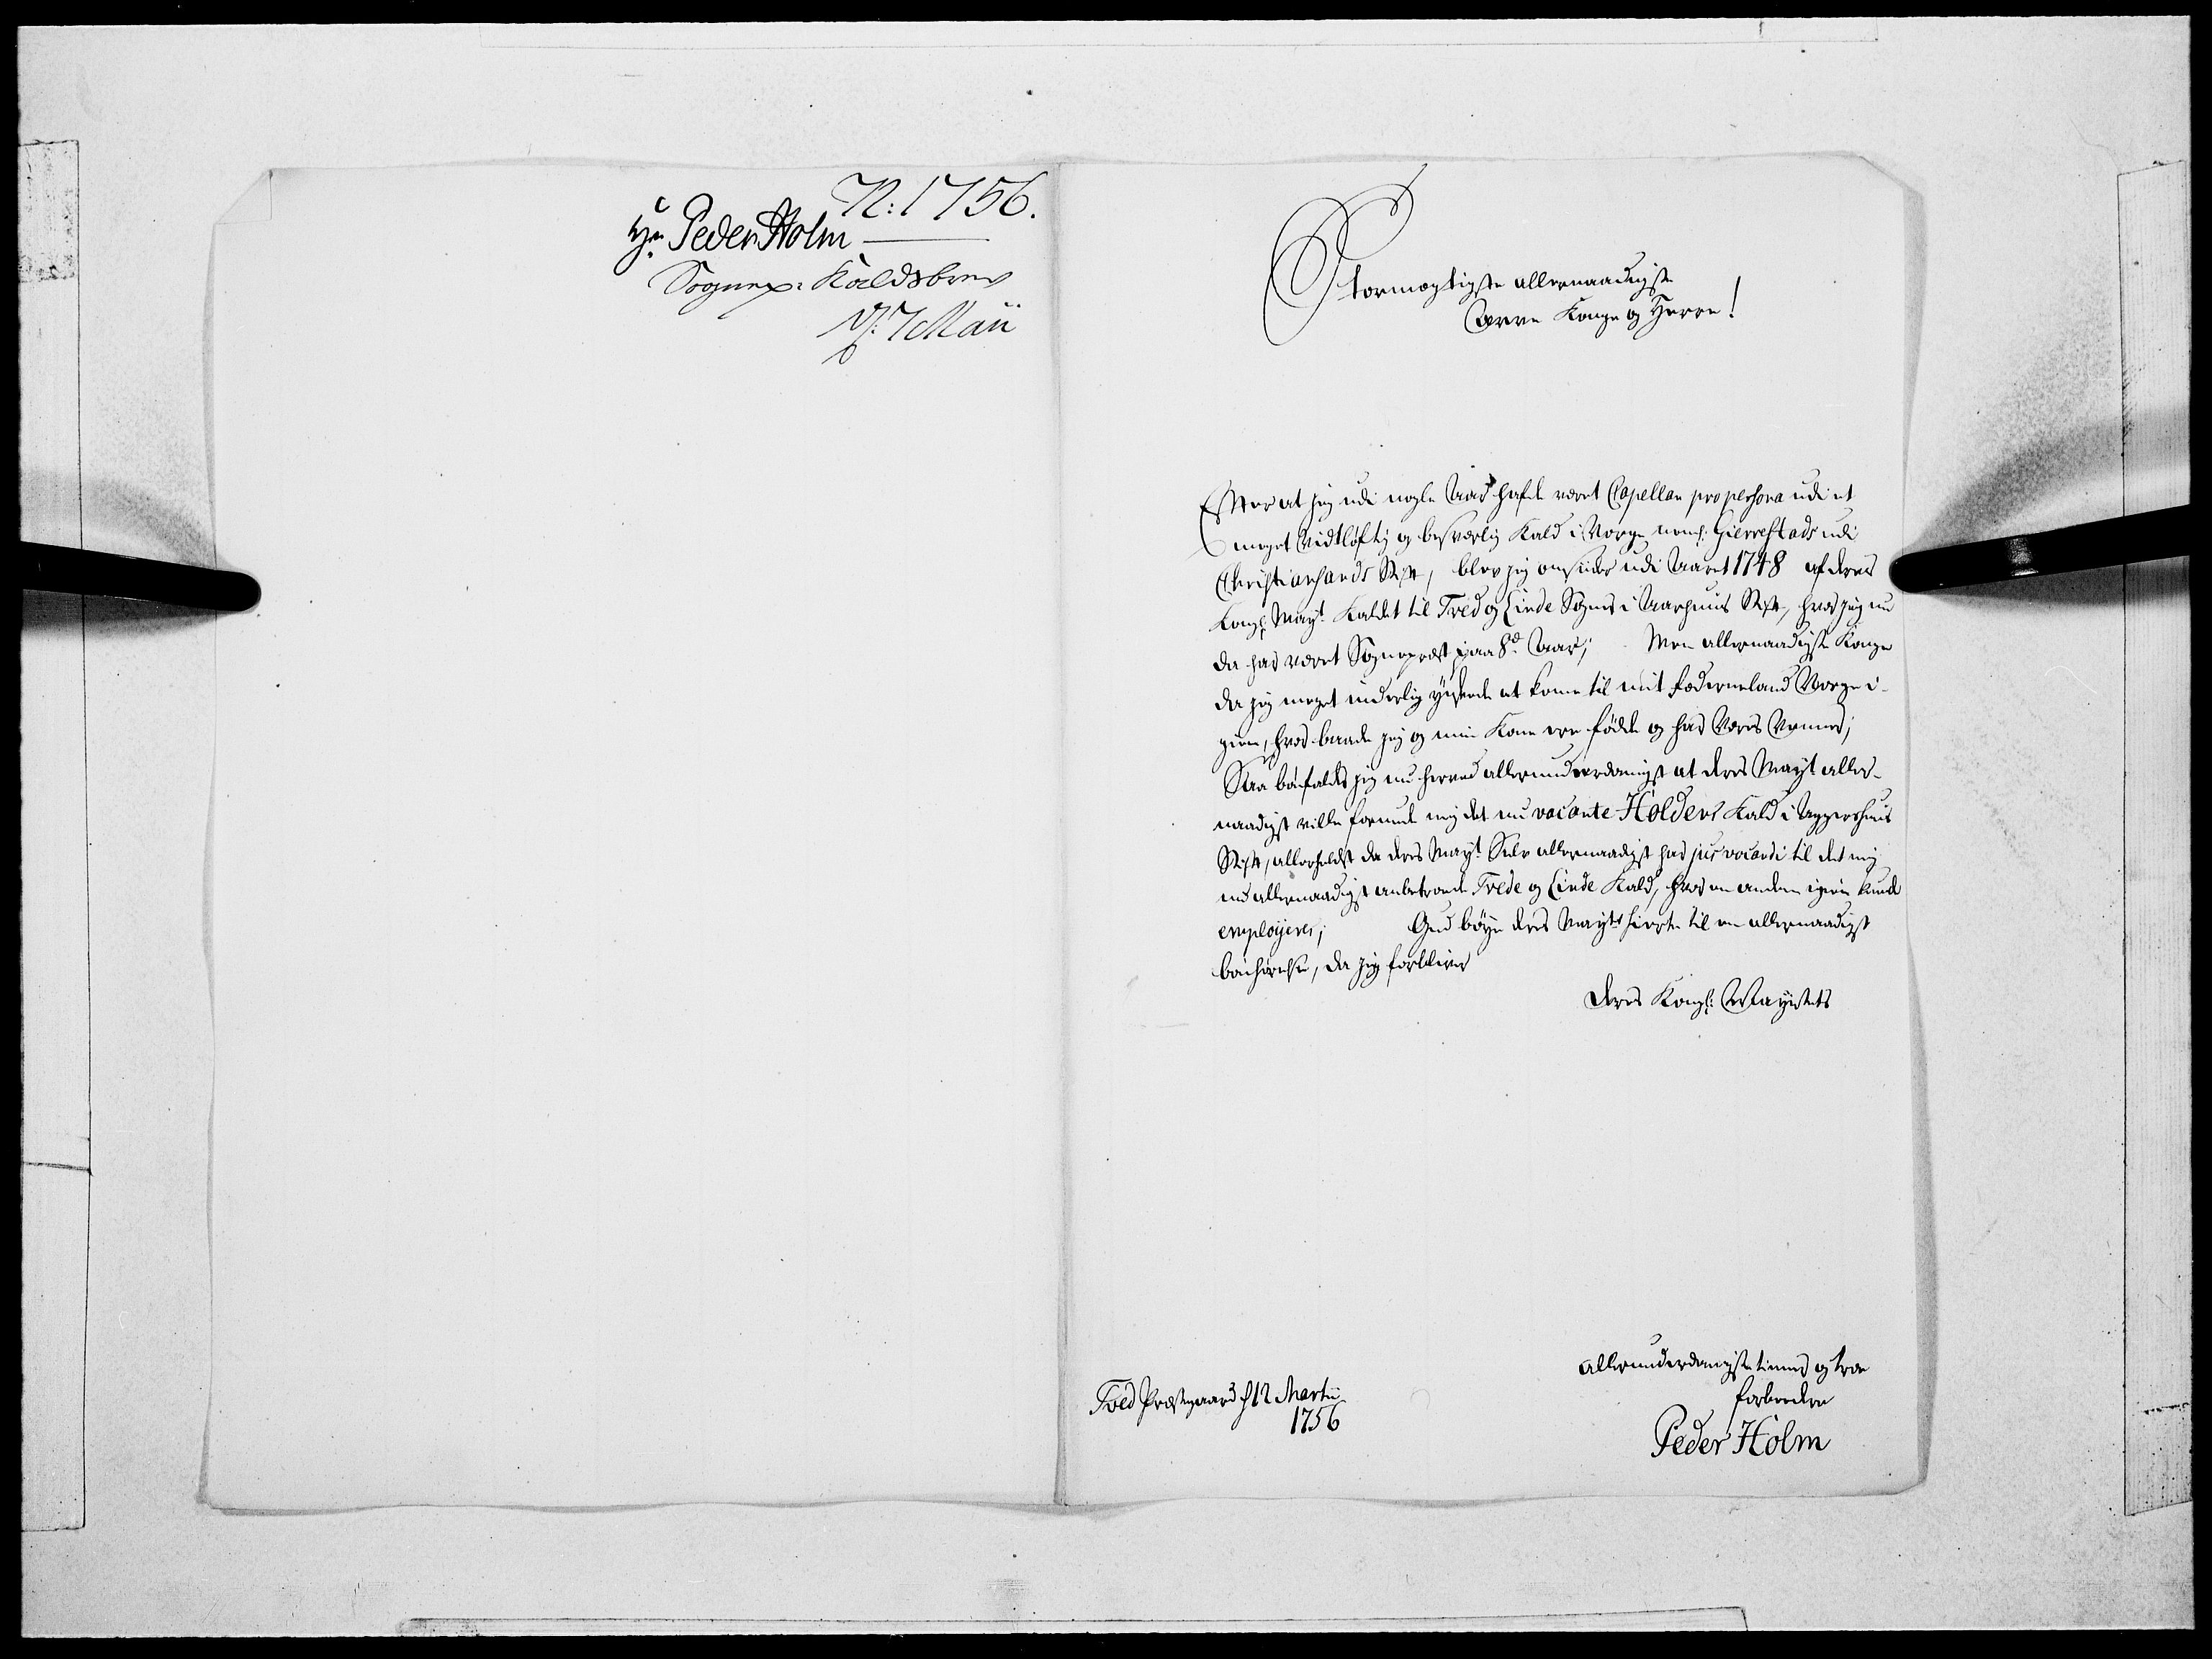 N: 1756.
Hr. Peder Holm
Sognep: Kaldsbrev
7 Maii
Stormægtigste allernaadigste
Arve Konge og Herre!
Efter at jeg udi nogle Aar hafde været Capellan pro persona udi et
meget Vidtløftig og besværlig Kald i Norge neml: Gierrestads udi
Christiansands Stift, blev jeg omsider udi Aaret 1748 af deres
Kongl: Mayt. Kaldet til Tved og Linde Sogner i Aarhuus Stift, hvor jeg nu
da har været Sognepræst paa 8de Aar; Men allernaadigste Konge
da jeg meget inderlig ynskede at komme til mit fæderneland Norge i-
gien, hvor baade jeg og min Kone ere fødde og har Vores Venner;
Saa bønfalder jeg nu herved allerunderdanigst at deres Mayt aller-
naadigst ville forunde mig det nu vacante Holdens Kald i Aggershuus
Stift, allerhelst da deres Mayt. Selv allernaadigst har jus vocandi til det mig
nu allernaadigst anbetroede Tvede og Linde Kald, hvor en anden igien kunde
employeres; Gud bøye deres Mayts hierte til en allernaadigst
bønhørelse, da jeg forbliver
Deres Kongl: Mayestets
allerunderdanigste tiener og troe
forbedere
Peder Holm
Tved Præstegaard d 12 Martii
1756